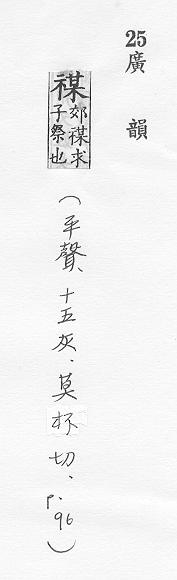 25廣韻
禖郊禖求子祭也
(平聲、十五灰、莫杯切、p.96)